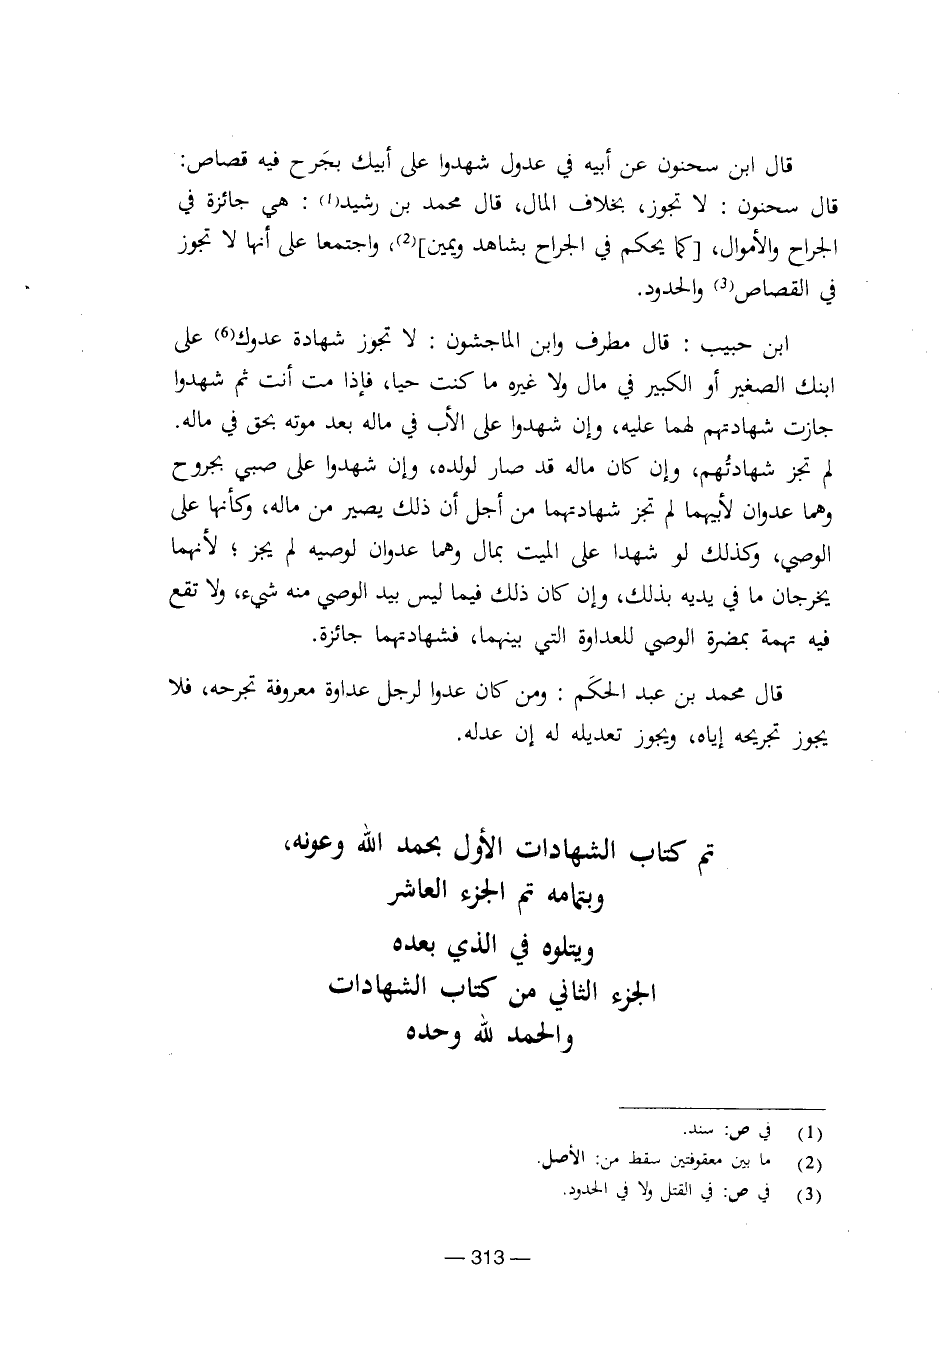 قال ابن سحنون عن أبيه في عدول شهدوا على أبيك بجَرح فيه قصاص:
قال سحنون : لا تجوز، بخلاف المال، قال محمد بن رشيد(1) : هي جائزة في
الجراح والأموال، [كما يحكم في الجراح بشاهد ويمين](2)، واجتمعا على أنها لا تجوز
في القصاص(3) والحدود.
ابن حبيب : قال مطرف وابن الماجشون : لا تجوز شهادة عدوك(6) على
ابنك الصغير أو الكبير في مال ولا غيره ما كنت حيا، فإذا مت أنت ثم شهدوا
جازت شهادتهم لهما عليه، وإن شهدوا على الأب في ماله بعد موته بحق في ماله.
لم تجز شهادتُهم، وإن كان ماله قد صار لولده، وإن شهدوا على صبي بجروح
وهما عدوان لأبيهما لم تجز شهادتهما من أجل أن ذلك يصير من ماله، وكأنها على
الوصي، وكذلك لو شهدا على الميت بمال وهما عدوان لوصيه لم يجز ؛ لأنهما
يخرجان ما في يديه بذلك، وإن كان ذلك فيما ليس بيد الوصي منه شيء، ولا تقع
فيه تهمة بمضرة الوصي للعداوة التي بينهما، فشهادتهما جائزة.
قال محمد بن عبد الحكَم : ومن كان عدوا لرجل عداوة معروفة تجرحه، فلا
يجوز تجريحه إياه، ويجوز تعديله له إن عدله.
تم كتاب الشهادات الأول بحمد الله وعونه،
وبتمامه تم الجزء العاشر
ويتلوه في الذي بعده
الجزء الثاني من كتاب الشهادات
والحمد لله وحده
(1) في ص: سند.
(2) ما بين معقوفتين سقط من: الأصل.
(3) في ص: في القتل ولا في الحدود.
— 313 —